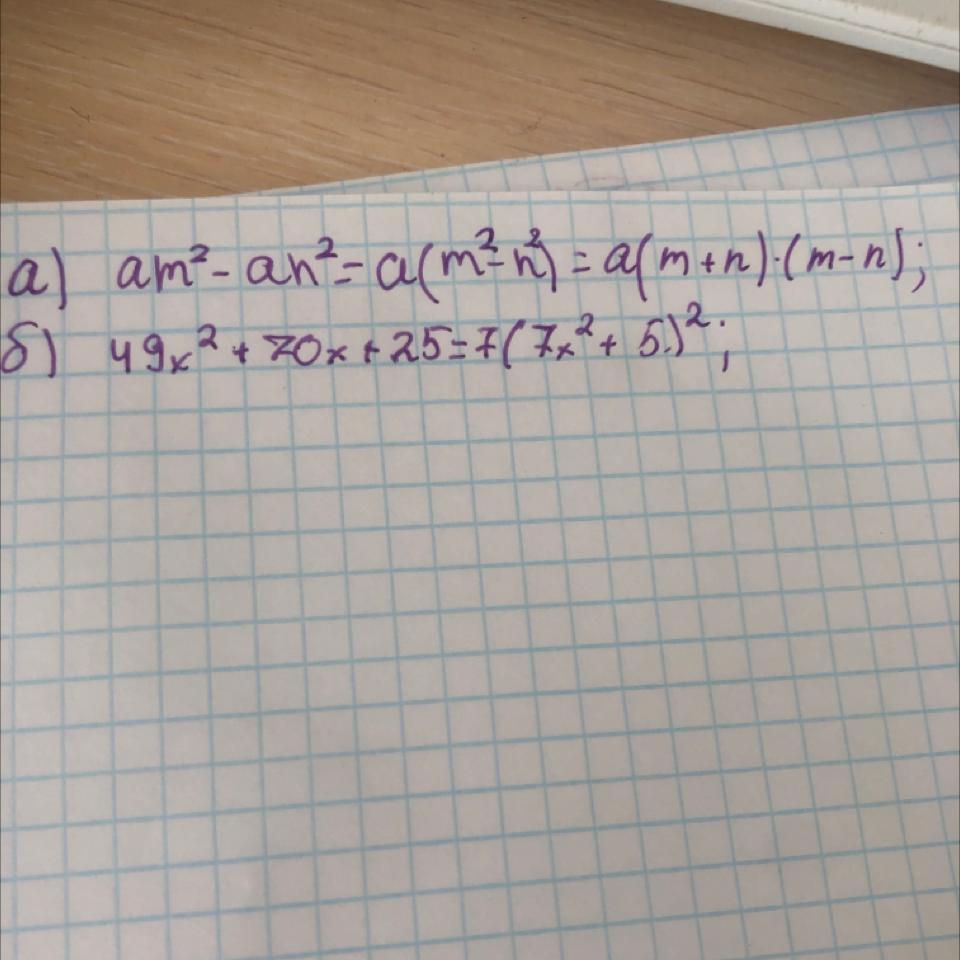 а) am² - an² = a(m² - n²) = a(m + n)·(m - n);
б) 49x² + 70x + 25 = 7(7x² + 5)²;